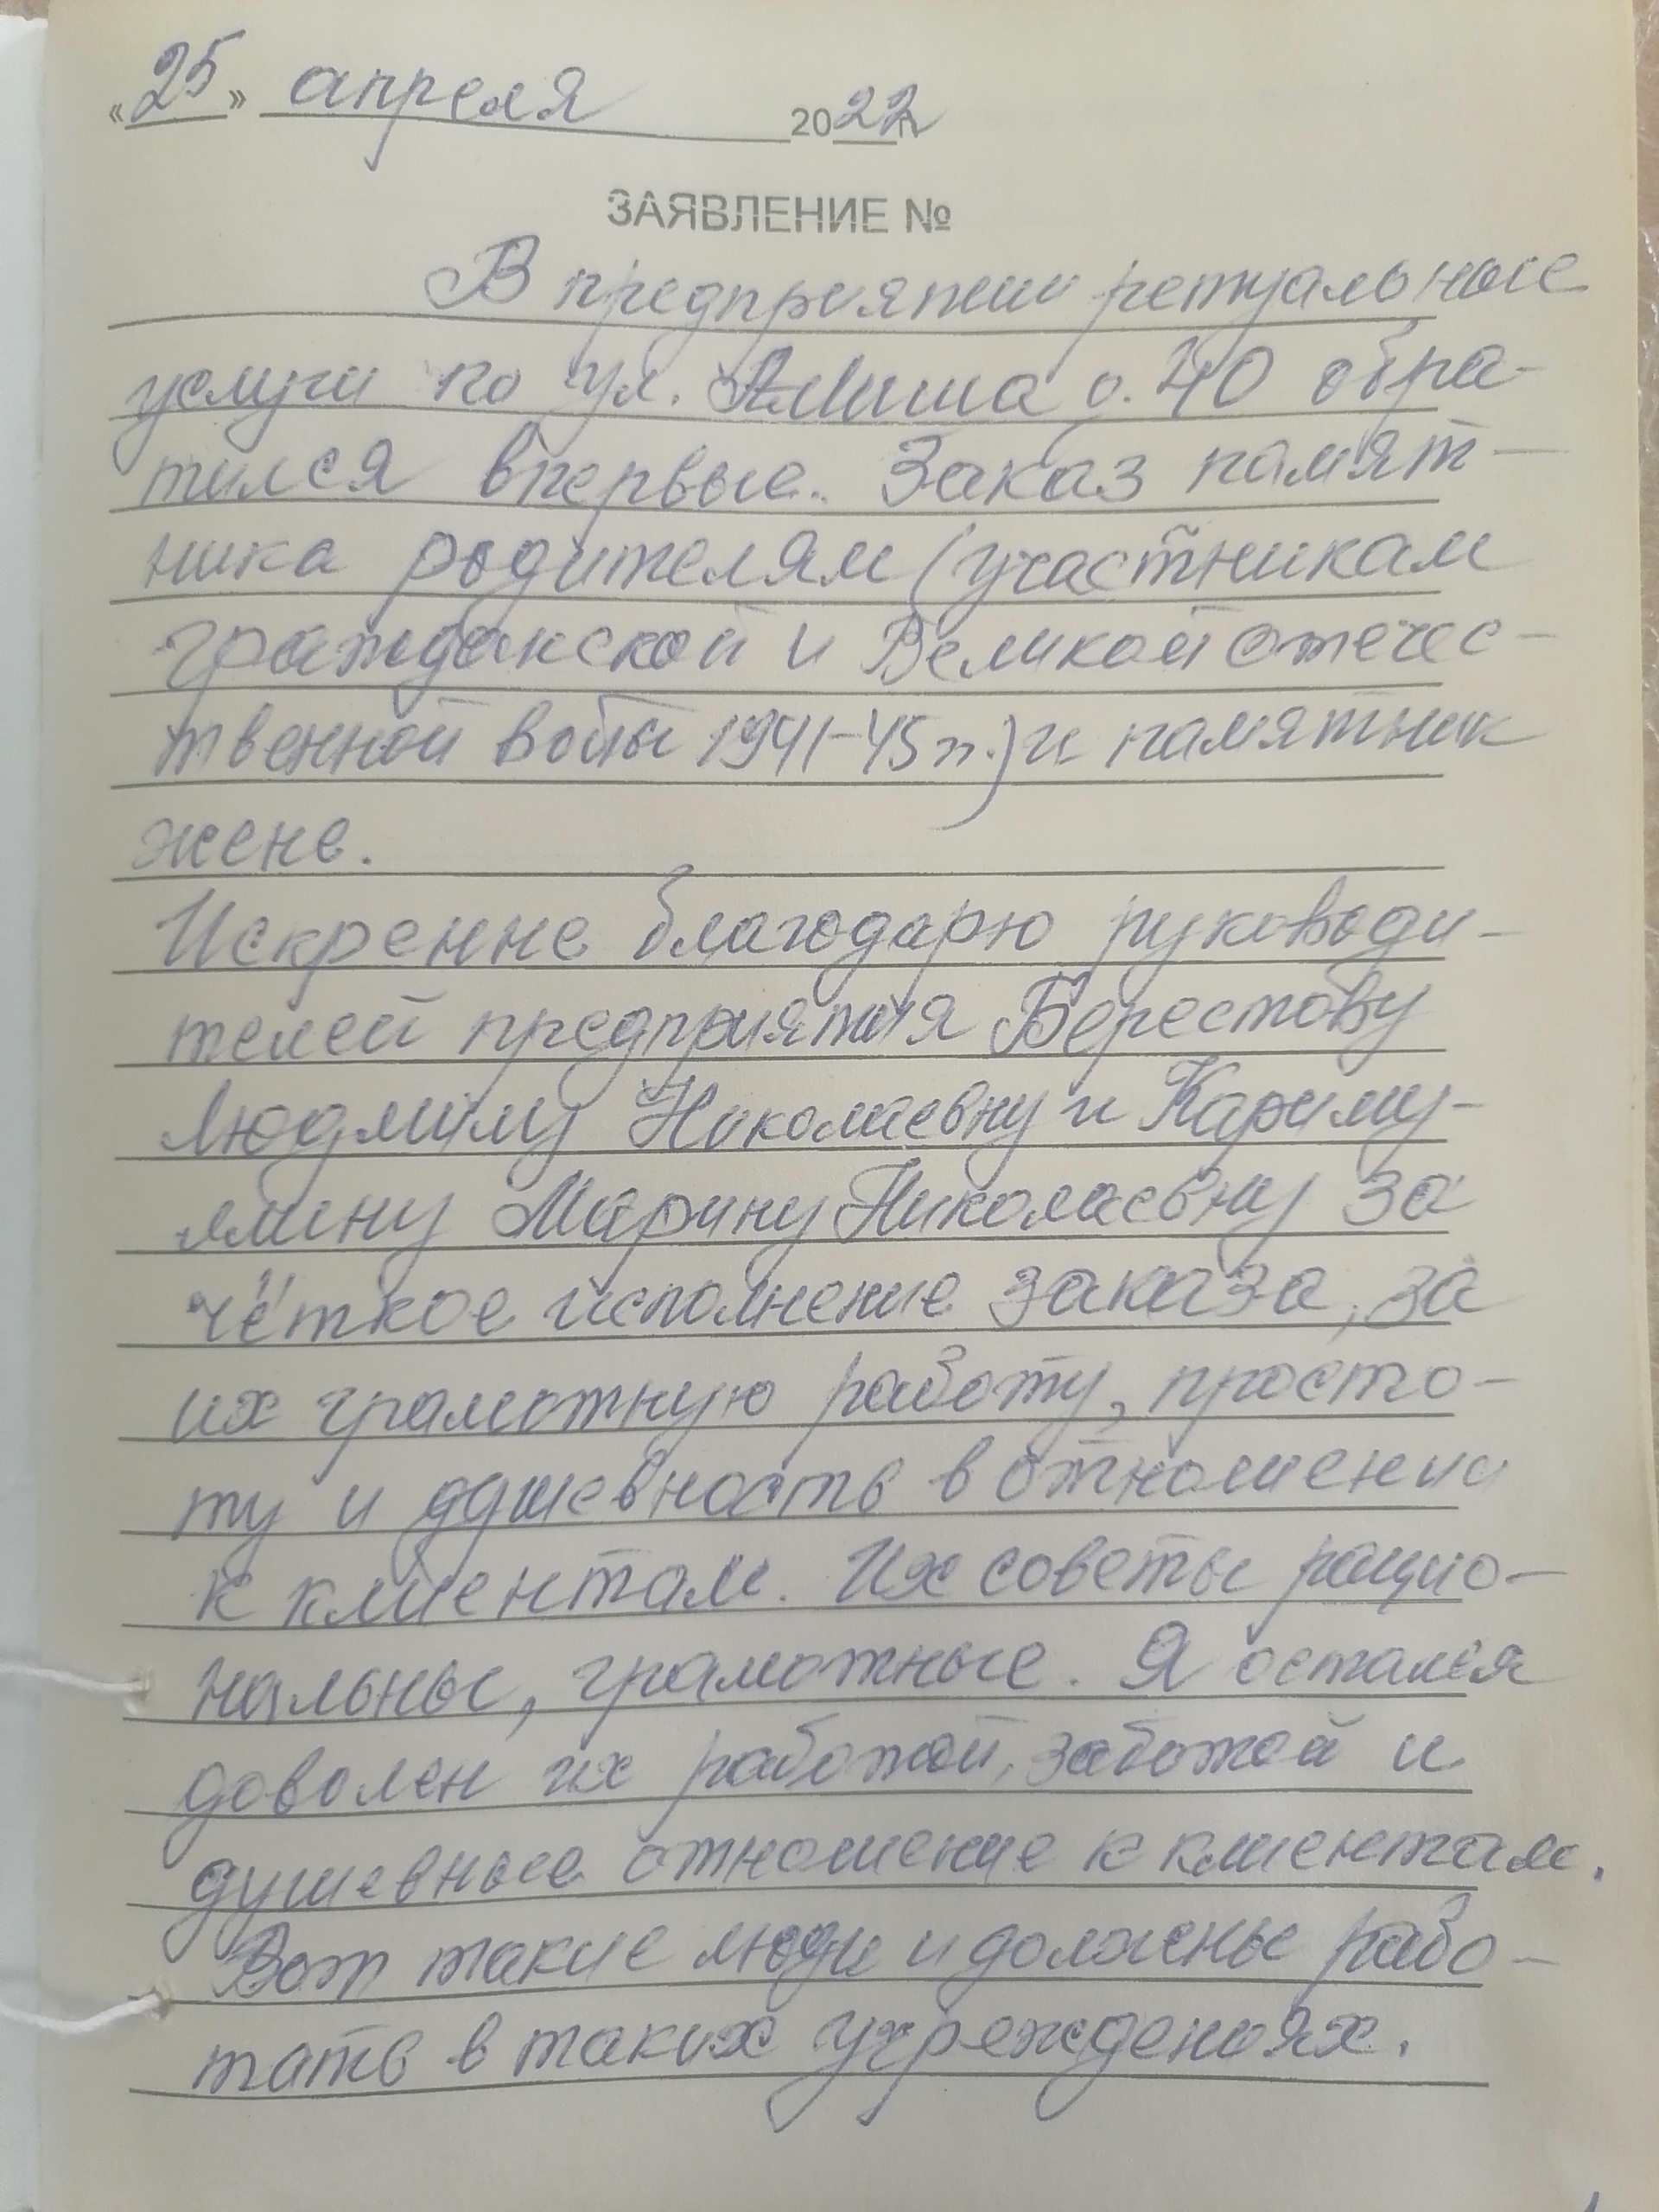 «25» апреля 2022г
ЗАЯВЛЕНИЕ №
В предприятии ретуальные
услуги по ул. д. 40 обра-
тился впервые. Заказ памят-
ника родителям (участникам
гражданской и Великой отечес-
твенной войны 1941-45 гг.) и памятник
жене.
Искренне благодарю руководи-
телей предприятия Берестову
Людмилу Николаевну и Кариму-
ллину Марину Николаевну за
чёткое исполнение заказа, за
их грамотную работу, просто-
ту и душевность в отношении
к клиентам. Их советы рацио-
нальны, грамотные. Я остался
доволен их работой, заботой и
душевные отношение к клиентам.
Вот такие люди и должны рабо-
тать в таких учреждениях.